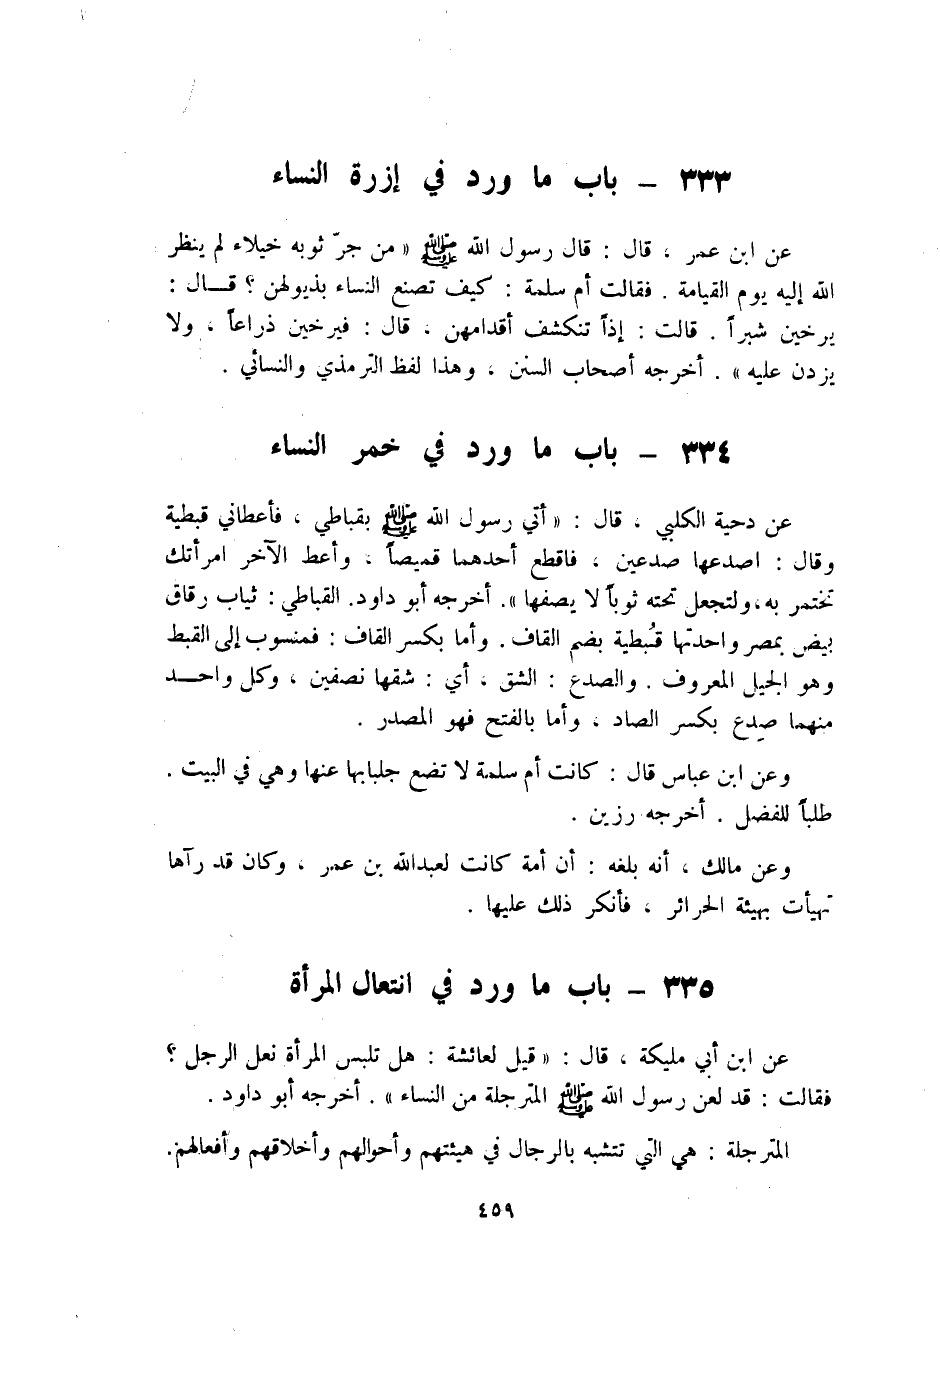 ٣٣٣ – باب ما ورد في إزرة النساء
عن ابن عمر ، قال : قال رسول الله ﷺ « من جرّ ثوبه خيلاء لم ينظر
الله إليه يوم القيامة . فقالت أم سلمة : كيف تصنع النساء بذيولهن ؟ قـــال :
يرخين شبراً . قالت : إذاً تنكشف أقدامهن ، قال : فيرخين ذراعاً ، ولا
يزدن عليه » . أخرجه أصحاب السنن ، وهذا لفظ الترمذي والنسائي .
٣٣٤ – باب ما ورد في خمر النساء
عن دحية الكلبي ، قال : « أتي رسول الله ﷺ بقباطي ، فأعطاني قبطية
وقال : اصدعها صدعين ، فاقطع أحدهما قميصاً ، وأعط الآخر امرأتك
تختمر به،ولتجعل تحته ثوباً لا يصفها ». أخرجه أبو داود. القباطي : ثياب رقاق
بيض بمصر واحدتها قُبطية بضم القاف . وأما بكسر القاف : فمنسوب إلى القبط
وهو الجيل المعروف . والصدع : الشق ، أي : شقها نصفين ، وكل واحـــد
منهما صِدع بكسر الصاد ، وأما بالفتح فهو المصدر .
وعن ابن عباس قال : كانت أم سلمة لا تضع جلبابها عنها وهي في البيت .
طلباً للفضل . أخرجه رزين .
وعن مالك ، أنه بلغه : أن أمة كانت لعبدالله بن عمر ، وكان قد رآها
تهيأت بهيئة الحرائر ، فأنكر ذلك عليها .
٣٣٥ – باب ما ورد في انتعال المرأة
عن ابن أبي مليكة ، قال : « قيل لعائشة : هل تلبس المرأة نعل الرجل ؟
فقالت : قد لعن رسول الله ﷺ المترجلة من النساء » . أخرجه أبو داود .
المترجلة : هي التي تتشبه بالرجال في هيئتهم وأحوالهم وأخلاقهم وأفعالهم.
٤٥٩